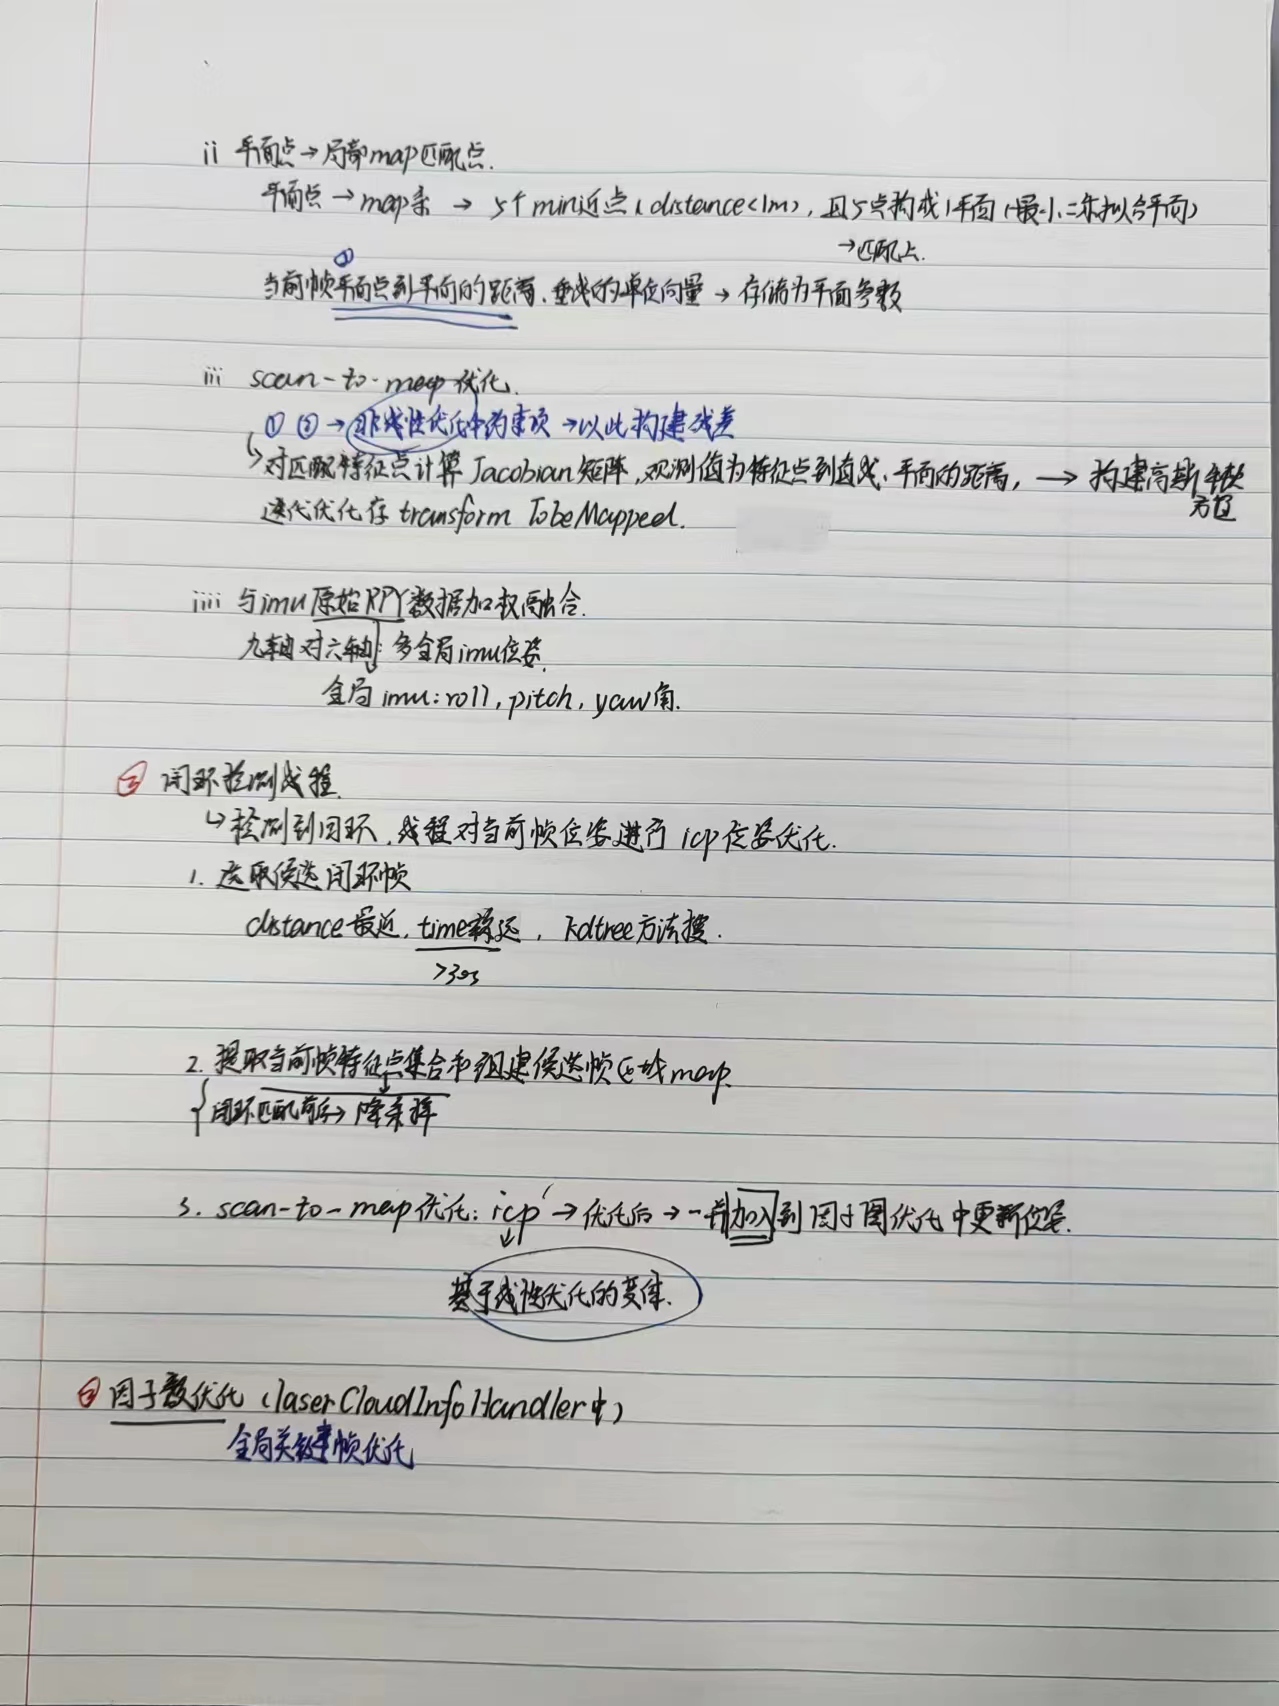 ii 平面点→局部map匹配点.
平面点→map系→5个mini近点(distance<1m),且5点构成1平面(最小二乘拟合平面)
→匹配上.
②
当前帧平面点到平面的距离、垂线的单位向量→存储为平面参数
iii scan-to-map优化.
① ②→非线性优化中约束项→以此构建残差
↳对匹配特征点计算Jacobian矩阵,观测值为特征点到直线、平面的距离,→构建高斯牛顿
方程
迭代优化存transformTobeMapped.
iiii 与imu原始RPY数据加权融合.
九轴对六轴:多全局imu位姿.
全局imu:roll,pitch,yaw角.
闭环检测线程.
↳检测到闭环,线程对当前帧位姿进行icp位姿优化.
1. 选取候选闭环帧
distance最近,time较远,kdtree方法搜.
>30s
2. 提取当前帧特征点集合和组建候选帧区域map.
闭环匹配前后→降采样
3. scan-to-map优化:icp→优化后→一并加入到因子图优化中更新位姿.
基于线性优化的变体.
因子图优化(laserCloudInfoHandler中)
全局关键帧优化